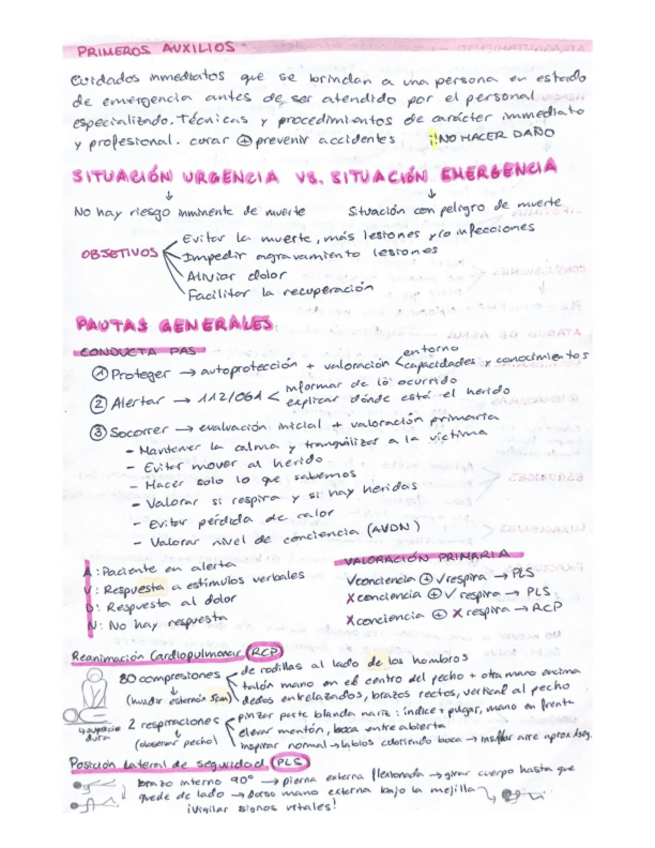 PRIMEROS AUXILIOS
Cuidados inmediatos que se brindan a una persona en estado
de emergencia antes de ser atendido por el personal
especializado. Técnicas y procedimientos de carácter immediato
y profesional. curar ⊕ prevenir accidentes ¡!NO HACER DAÑO
SITUACIÓN URGENCIA VS. SITUACIÓN EMERGENCIA
↓ ↓
No hay riesgo inminente de muerte Situación con peligro de muerte
OBJETIVOS
Evitar la muerte, más lesiones y/o infecciones
Impedir agravamiento lesiones
Aliviar dolor
Facilitar la recuperación
PAUTAS GENERALES
CONDUCTA PAS
① Proteger → autoprotección + valoración < entorno
capacidades y conocimientos
② Alertar → 112/061 < informar de lo ocurrido
explicar dónde está el herido
③ Socorrer → evaluación inicial + valoración primaria
- Mantener la calma y tranquilizar a la víctima
- Evitar mover al herido
- Hacer solo lo que sabemos
- Valorar si respira y si hay heridas
- Evitar pérdida de calor
- Valorar nivel de conciencia (AVDN)
A: Paciente en alerta
V: Respuesta a estímulos verbales
D: Respuesta al dolor
N: No hay respuesta
VALORACIÓN PRIMARIA
Vconciencia ⊕ V respira → PLS
Xconciencia ⊕ V respira → PLS
Xconciencia ⊕ X respira → RCP
Reanimación Cardiopulmonar (RCP)
30 compresiones
↓
(hundir esternón 5cm)
de rodillas al lado de los hombros
talón mano en el centro del pecho + otra mano encima
dedos entrelazados, brazos rectos, vertical al pecho
superficie
dura
2 respiraciones
↓
(observar pecho)
pinzar parte blanda nariz: índice + pulgar, mano en frente
elevar mentón, boca entreabierta
inspirar normal → labios cubriendo boca → insuflar aire aprox 1seg.
Posición lateral de seguridad (PLS)
brazo interno 90° → pierna externa flexionada → girar cuerpo hasta que
quede de lado → dorso mano externa bajo la mejilla
¡Vigilar signos vitales!